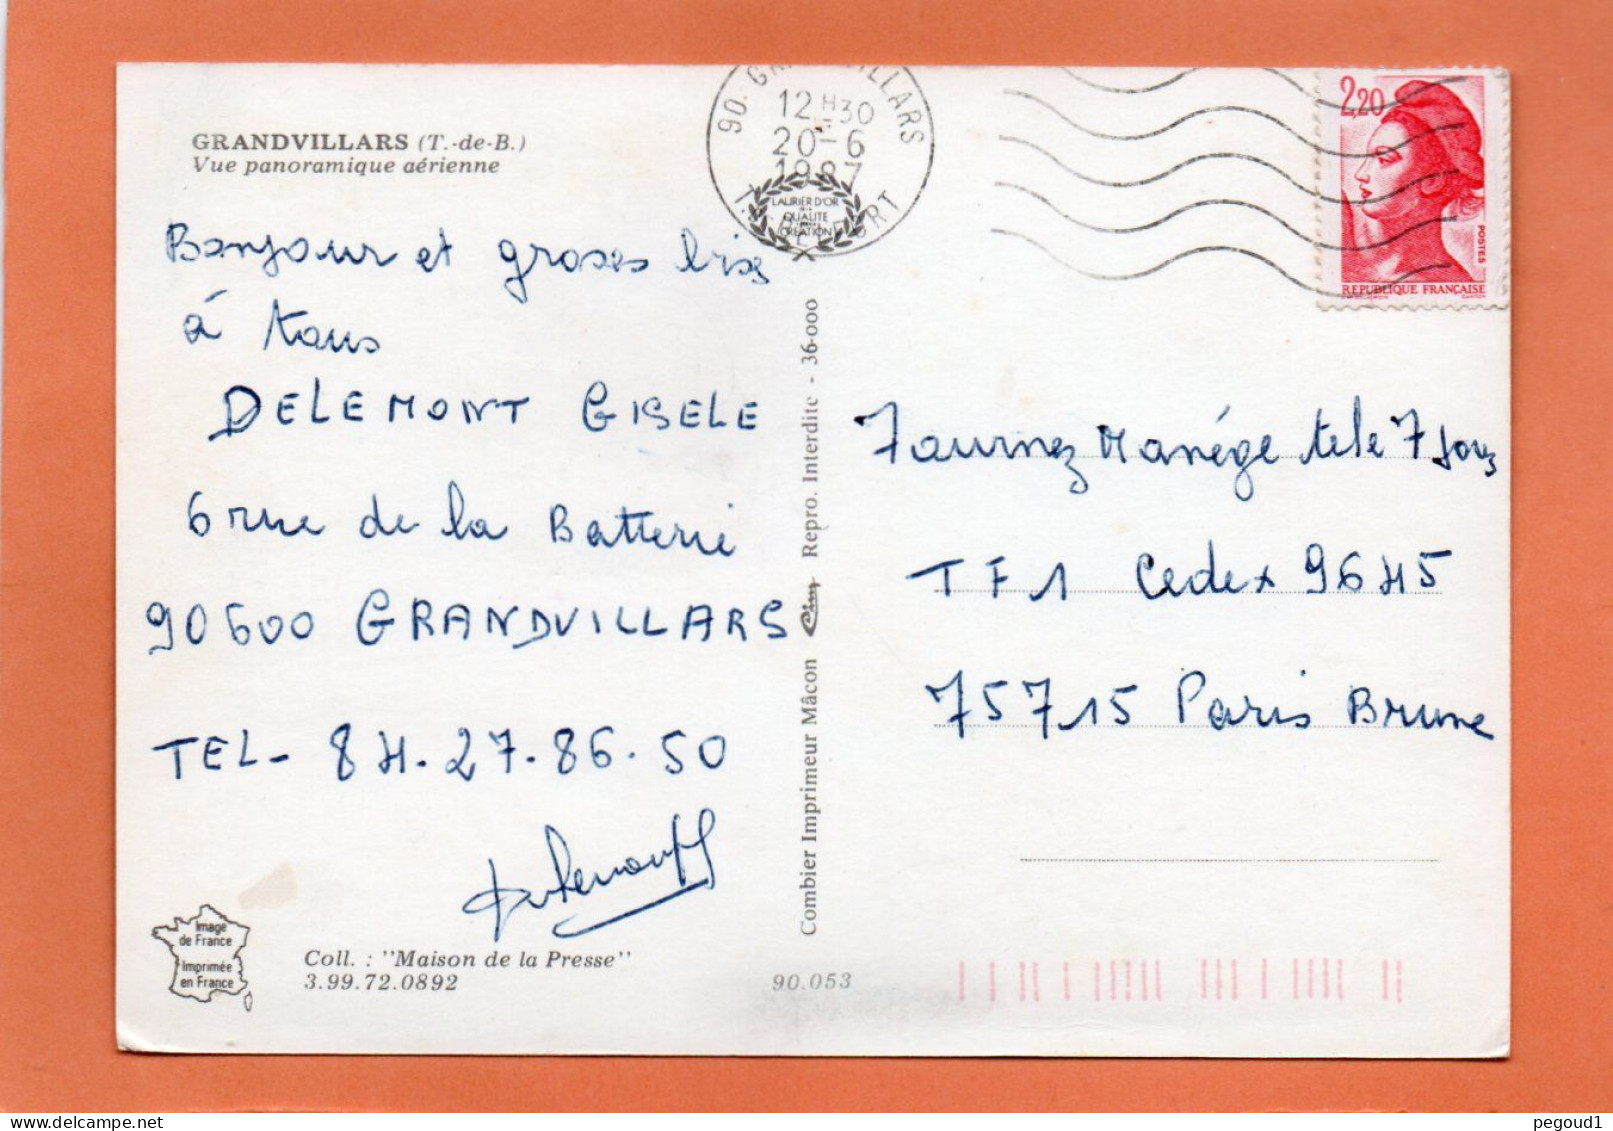 GRANDVILLARS (T.-de-B.)
Vue panoramique aérienne
90. GRANDVILLARS
12 H 30
20-6
1987
T. DE BELFORT
LAURIER D'OR
DE LA
QUALITE
CREATION
2,20
POSTES
REPUBLIQUE FRANÇAISE
Bonjour et groses bise
à tous
DELEMONT GISELE
6 rue de la Batterie
90600 GRANDVILLARS
TEL- 84.27.86.50
Tournez Manége tele 7 Jours
TF1 Cedex 9645
75715 Paris Brune
Combier Imprimeur Mâcon Cim Repro. Interdite - 36-000
Image
de France
Imprimée
en France
Coll. : "Maison de la Presse"
3.99.72.0892
90.053
pegoud1